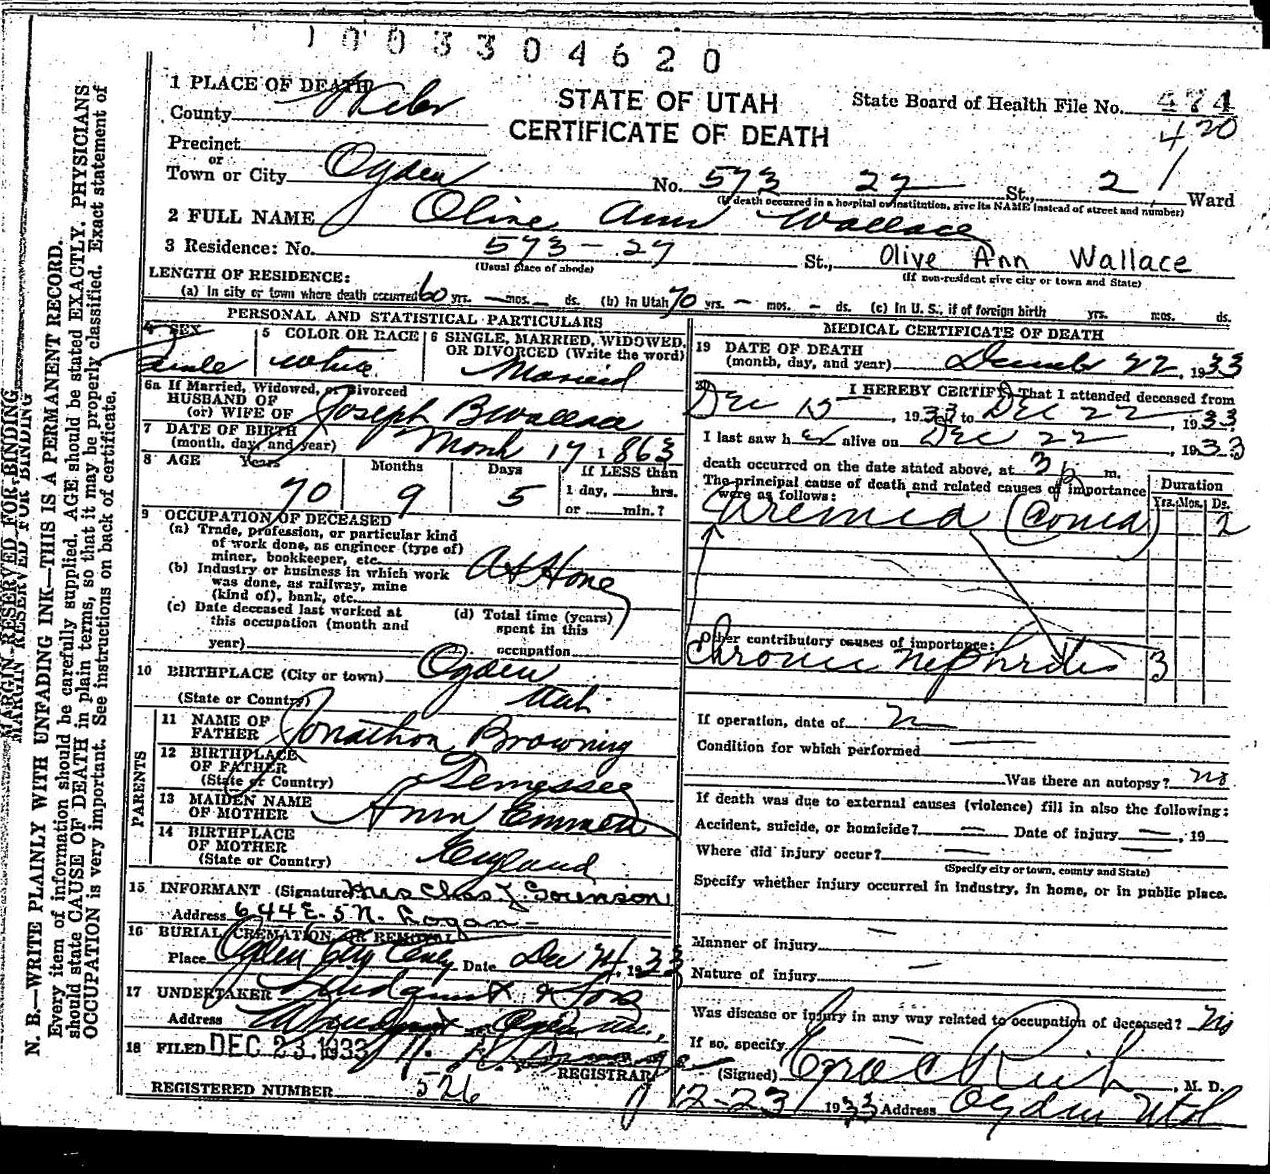 1003304620
1 PLACE OF DEATH
STATE OF UTAH
CERTIFICATE OF DEATH
State Board of Health File No. 474
420
County Weber
Precinct
or
Town or City Ogden No. 573 27 St., 2 Ward
(If death occurred in a hospital or institution, give its NAME instead of street and number)
2 FULL NAME Olive Ann Wallace
3 Residence: No. 573-27 St., Olive Ann Wallace
(Usual place of abode) (If non-resident give city or town and State)
LENGTH OF RESIDENCE:
(a) In city or town where death occurred 60 yrs. — mos. — ds. (b) In Utah 70 yrs. — mos. — ds. (c) In U. S., if of foreign birth yrs. mos. ds.
PERSONAL AND STATISTICAL PARTICULARS
4 SEX 5 COLOR OR RACE 6 SINGLE, MARRIED, WIDOWED, OR DIVORCED (Write the word)
Female White Married
6a If Married, Widowed, or Divorced
HUSBAND OF
(or) WIFE OF Joseph B Wallace
7 DATE OF BIRTH
(month, day, and year) March 17 1863
8 AGE Years Months Days If LESS than
70 9 5 1 day, hrs.
or min.?
9 OCCUPATION OF DECEASED
(a) Trade, profession, or particular kind
of work done, as engineer (type of)
miner, bookkeeper, etc.
At Home
(b) Industry or business in which work
was done, as railway, mine
(kind of), bank, etc.
(c) Date deceased last worked at
this occupation (month and
year)
(d) Total time (years)
spent in this
occupation
10 BIRTHPLACE (City or town) Ogden
(State or Country) Utah
PARENTS
11 NAME OF
FATHER Jonathon Browning
12 BIRTHPLACE
OF FATHER
(State or Country) Tennessee
13 MAIDEN NAME
OF MOTHER Ann Emmett
14 BIRTHPLACE
OF MOTHER
(State or Country) England
15 INFORMANT (Signature) Mrs Chas J. Sorenson
Address 644 E. 5 N. Logan
16 BURIAL, CREMATION OR REMOVAL
Place Ogden City Cemty Date Dec 24, 1933
17 UNDERTAKER Lindquist & Sons
Address Ogden Utah
18 FILED DEC 23 1933
REGISTRAR
REGISTERED NUMBER 526
MEDICAL CERTIFICATE OF DEATH
19 DATE OF DEATH
(month, day, and year) December 22, 1933
20 I HEREBY CERTIFY That I attended deceased from
Dec 15 1933 to Dec 22, 1933
I last saw her alive on Dec 22, 1933
death occurred on the date stated above, at 3 p m.
The principal cause of death and related causes of importance
were as follows:
Duration
Yrs. Mos. Ds.
Uremia (Coma) 2
Other contributory causes of importance:
Chronic Nephritis 3
If operation, date of
Condition for which performed
Was there an autopsy? no
If death was due to external causes (violence) fill in also the following:
Accident, suicide, or homicide? — Date of injury —, 19
Where did injury occur? —
(Specify city or town, county and State)
Specify whether injury occurred in industry, in home, or in public place.
Manner of injury —
Nature of injury —
Was disease or injury in any way related to occupation of deceased? No
If so, specify
(Signed) Ezra C Rich, M. D.
12-23 1933 Address Ogden Utah
MARGIN RESERVED FOR BINDING
MARGIN RESERVED FOR BINDING
N. B.—WRITE PLAINLY WITH UNFADING INK—THIS IS A PERMANENT RECORD.
Every item of information should be carefully supplied. AGE should be stated EXACTLY. PHYSICIANS
should state CAUSE OF DEATH in plain terms, so that it may be properly classified. Exact statement of
OCCUPATION is very important. See instructions on back of certificate.